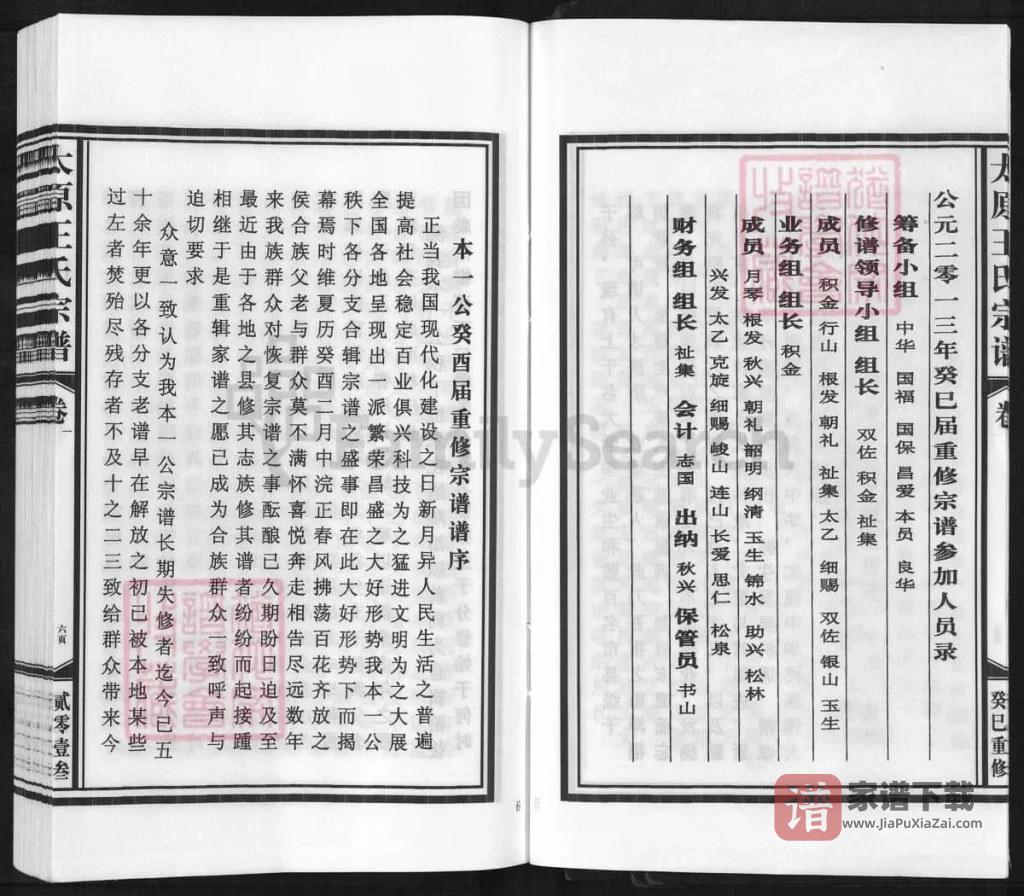 公元二零一三年癸巳届重修宗谱参加人员录
筹备小组 中华 国福 国保 昌爱 本员 良华
修谱领导小组 组长 双佐 积金 祉集
成员 积金 行山 根发 朝礼 祉集 太乙 细赐 双佐 银山 玉生
业务组 组长 积金
成员 月琴 根发 秋兴 朝礼 韶明 纲清 玉生 锦水 助兴 松林
兴发 太乙 克旋 细赐 峻山 连山 长爱 思仁 松泉
财务组 组长 祉集 会计 志国 出纳 秋兴 保管员 书山
癸巳重修
太原王氏宗谱
卷一
六页
贰零壹叁
本一公癸酉届重修宗谱谱序
正当我国现代化建设之日新月异人民生活之普遍
提高社会稳定百业俱兴科技为之猛进文明为之大展
全国各地呈现出一派繁荣昌盛之大好形势我本一公
秩下各分支合辑宗谱之盛事即在此大好形势下而揭
幕焉时维夏历癸酉二月中浣正春风拂荡百花齐放之
侯合族父老与群众莫不满怀喜悦奔走相告尽远数年
来我族群众对恢复宗谱之事酝酿已久期盼日迫及至
最近由于各地之县修其志族修其谱者纷纷而起接踵
相继于是重辑家谱之愿已成为合族群众一致呼声与
迫切要求
众意一致认为我本一公宗谱长期失修者迄今已五
十余年更以各分支老谱早在解放之初已被本地某些
过左者焚殆尽残存者不及十之二三致给群众带来今
6
FamilySearch
谱
家谱下载
www.JiaPuXiaZai.com